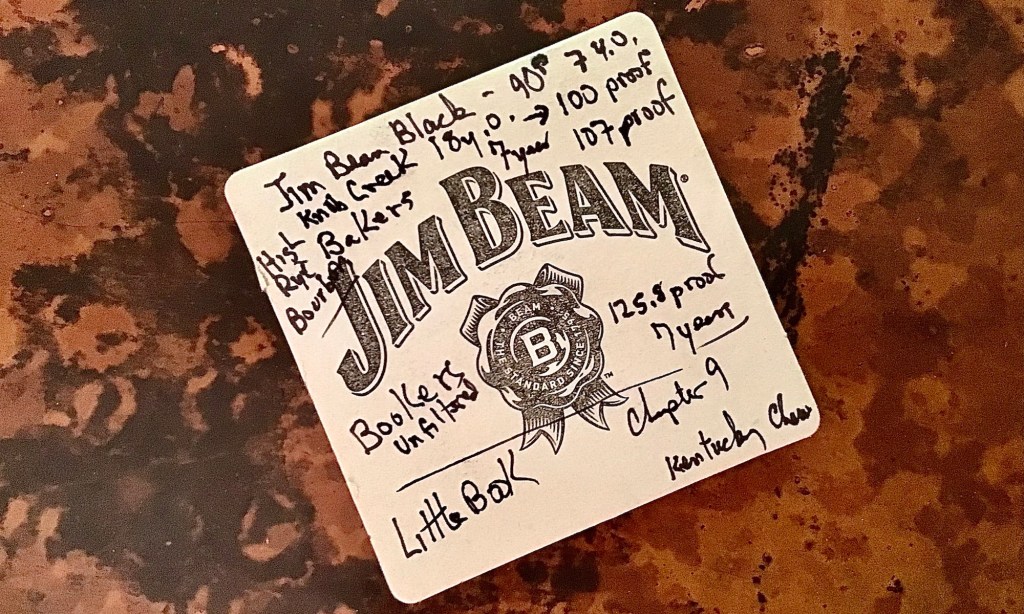 Jim Beam Black - 90° 7 y.o.
Knob Creek 18 y.o. → 100 proof
High Rye Bourbon
Bakers 7 year 107 proof
JIM BEAM®
THE BEAM
B
STANDARD SINCE 1795
TM
125.8 proof
7 years
Bookers
unfiltered
Little Book
Chapter 9
Kentucky Chew